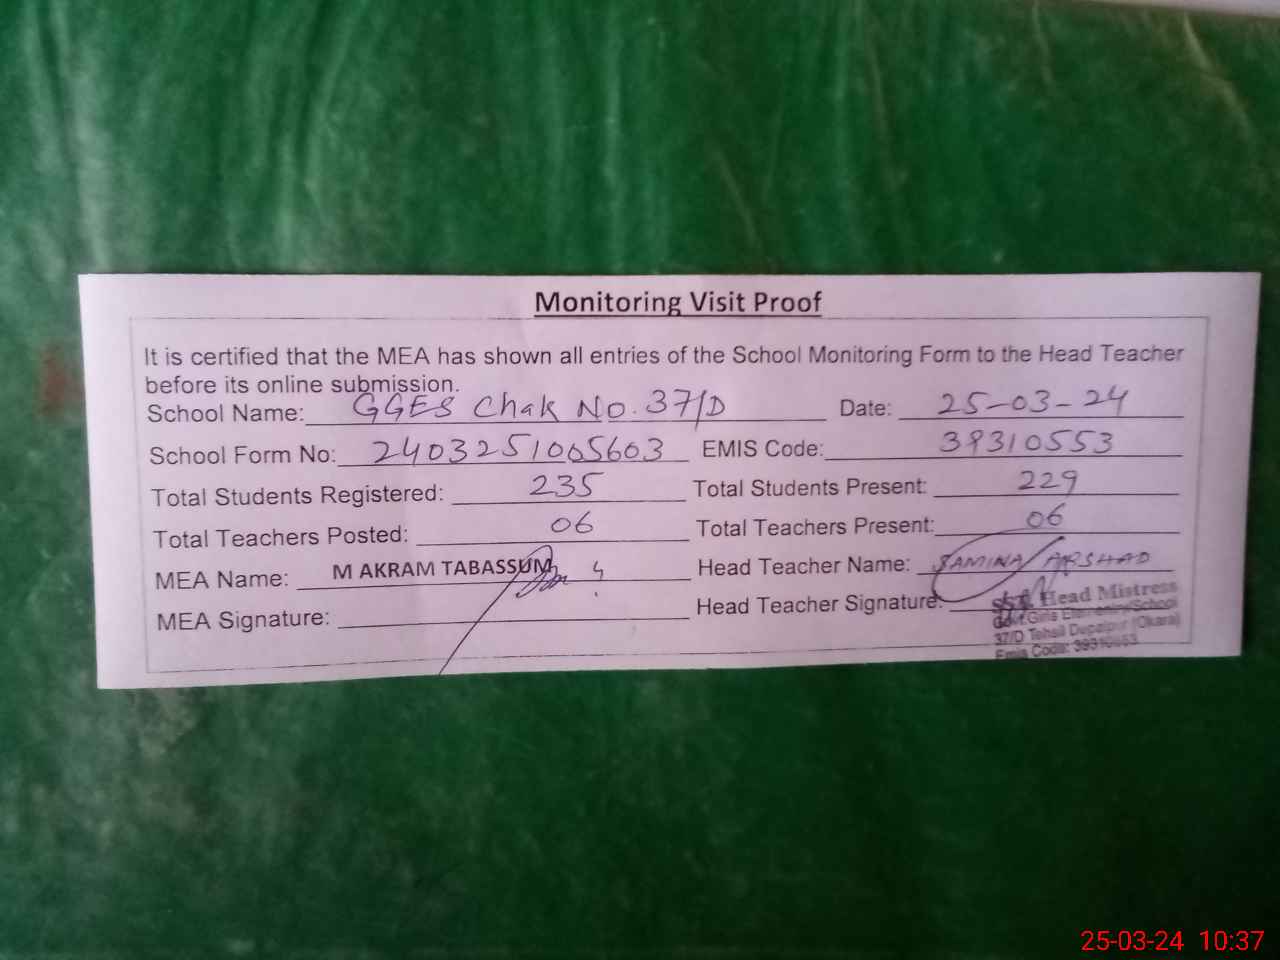 Monitoring Visit Proof
It is certified that the MEA has shown all entries of the School Monitoring Form to the Head Teacher
before its online submission.
School Name: GGES Chak No. 37/D Date: 25-03-24
School Form No: 2403251005603 EMIS Code: 39310553
Total Students Registered: 235 Total Students Present: 229
Total Teachers Posted: 06 Total Teachers Present: 06
MEA Name: M AKRAM TABASSUM Head Teacher Name: SAMINA ARSHAD
MEA Signature: Head Teacher Signature:
SST. Head Mistress
Govt. Girls Elementry School
37/D Tehsil Depalpur (Okara)
Emis Code: 39310553
25-03-24 10:37